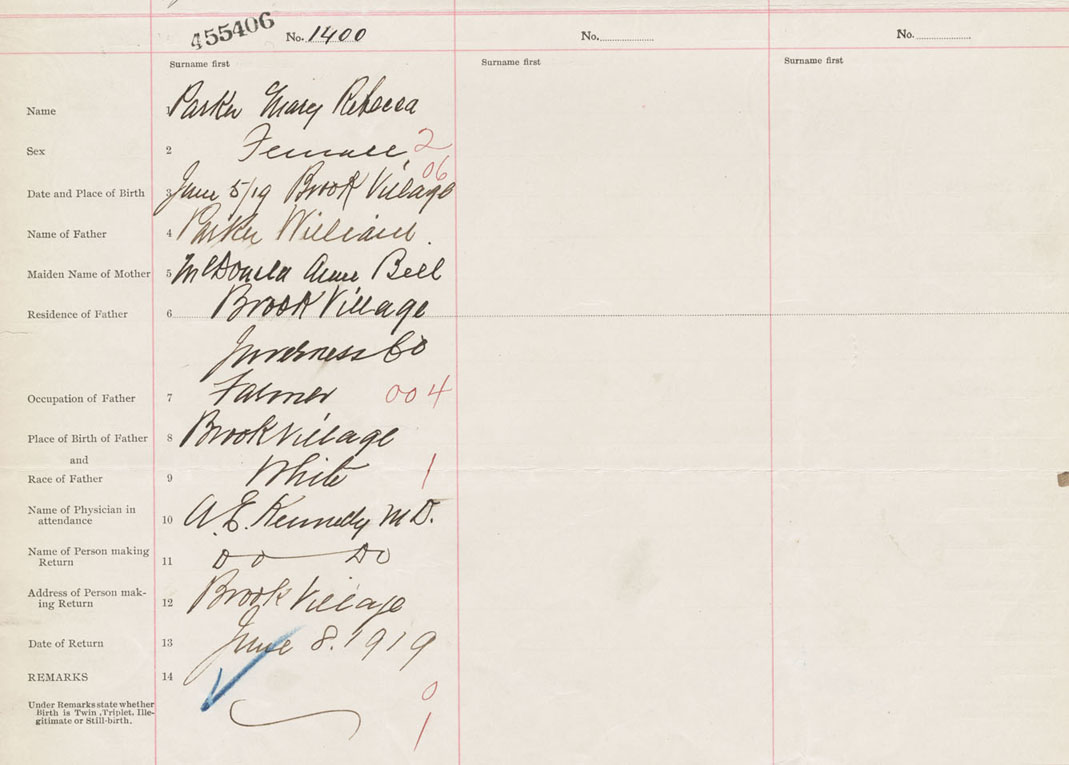 455406 No. 1400 No. No.
Surname first Surname first Surname first
Name 1 Parker Mary Rebecca
Sex 2 Female 2
06
Date and Place of Birth 3 June 5/19 Brook Village
Name of Father 4 Parker William
Maiden Name of Mother 5 McDonald Anne Bell
Residence of Father 6 Brook Village
Inverness Co
Occupation of Father 7 Farmer 004
Place of Birth of Father 8 Brook Village
and
Race of Father 9 White 1
Name of Physician in
attendance 10 A. E. Kennedy M D.
Name of Person making
Return 11 Do Do
Address of Person mak-
ing Return 12 Brook Village
Date of Return 13 June 8. 1919
REMARKS 14
0
Under Remarks state whether
Birth is Twin, Triplet, Ille-
gitimate or Still-birth. 1